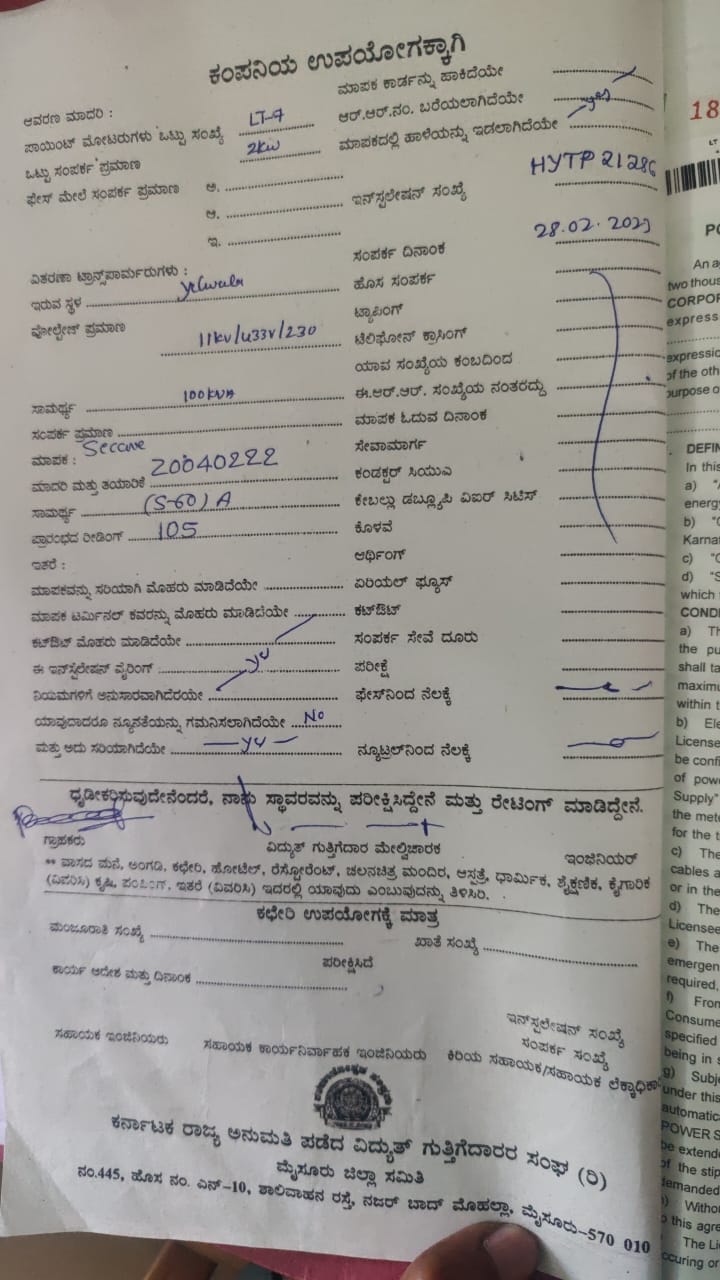 ಕಂಪನಿಯ ಉಪಯೋಗಕ್ಕಾಗಿ
ಆವರಣ ಮಾದರಿ :
ಪಾಯಿಂಟ್ ಮೋಟರುಗಳು ಒಟ್ಟು ಸಂಖ್ಯೆ LT-7
ಒಟ್ಟು ಸಂಪರ್ಕ ಪ್ರಮಾಣ 2kw
ಫೇಸ್ ಮೇಲೆ ಸಂಪರ್ಕ ಪ್ರಮಾಣ ಅ.
ಆ.
ಇ.
ವಿತರಣಾ ಟ್ರಾನ್ಸ್‌ಪಾರ್ಮರುಗಳು :
ಇರುವ ಸ್ಥಳ yelwala
ವೋಲ್ಟೇಜ್ ಪ್ರಮಾಣ
11kv/433v/230
ಸಾಮರ್ಥ್ಯ 100kVA
ಸಂಪರ್ಕ ಪ್ರಮಾಣ
ಮಾಪಕ : Secure
ಮಾದರಿ ಮತ್ತು ತಯಾರಿಕೆ 20040222
ಸಾಮರ್ಥ್ಯ (5-60) A
ಪ್ರಾರಂಭದ ರೀಡಿಂಗ್ 105
ಇತರೆ :
ಮಾಪಕವನ್ನು ಸರಿಯಾಗಿ ಮೊಹರು ಮಾಡಿದೆಯೇ
ಮಾಪಕ ಟರ್ಮಿನಲ್ ಕವರನ್ನು ಮೊಹರು ಮಾಡಿದೆಯೇ
ಕಟ್‌ಔಟ್ ಮೊಹರು ಮಾಡಿದೆಯೇ
ಈ ಇನ್‌ಸ್ಟಲೇಷನ್ ವೈರಿಂಗ್
ನಿಯಮಗಳಿಗೆ ಅನುಸಾರವಾಗಿದೆರೆಯೇ
ಯಾವುದಾದರೂ ನ್ಯೂನತೆಯನ್ನು ಗಮನಿಸಲಾಗಿದೆಯೇ No
ಮತ್ತು ಅದು ಸರಿಯಾಗಿದೆಯೇ
ಮಾಪಕ ಕಾರ್ಡನ್ನು ಹಾಕಿದೆಯೇ
ಆರ್.ಆರ್.ನಂ. ಬರೆಯಲಾಗಿದೆಯೇ
ಮಾಪಕದಲ್ಲಿ ಹಾಳೆಯನ್ನು ಇಡಲಾಗಿದೆಯೇ
HYTP 21286
ಇನ್‌ಸ್ಟಲೇಷನ್ ಸಂಖ್ಯೆ
28.02.2023
ಸಂಪರ್ಕ ದಿನಾಂಕ
ಹೊಸ ಸಂಪರ್ಕ
ಟ್ಯಾಪಿಂಗ್
ಟೆಲಿಫೋನ್ ಕ್ರಾಸಿಂಗ್
ಯಾವ ಸಂಖ್ಯೆಯ ಕಂಬದಿಂದ
ಈ.ಆರ್.ಆರ್. ಸಂಖ್ಯೆಯ ನಂತರದ್ದು
ಮಾಪಕ ಓದುವ ದಿನಾಂಕ
ಸೇವಾಮಾರ್ಗ
ಕಂಡಕ್ಟರ್ ಸಿಯುಎ
ಕೇಬಲ್ಲು ಡಬ್ಲ್ಯೂಪಿ ವಿಐರ್ ಸಿಟಿಸ್
ಕೊಳವೆ
ಆರ್ಥಿಂಗ್
ಏರಿಯಲ್ ಫ್ಯೂಸ್
ಕಟ್‌ಔಟ್
ಸಂಪರ್ಕ ಸೇವೆ ದೂರು
ಪರೀಕ್ಷೆ
ಫೇಸ್‌ನಿಂದ ನೆಲಕ್ಕೆ
ನ್ಯೂಟ್ರಲ್‌ನಿಂದ ನೆಲಕ್ಕೆ
ಧೃಡೀಕರಿಸುವುದೇನೆಂದರೆ, ನಾನು ಸ್ಥಾವರವನ್ನು ಪರೀಕ್ಷಿಸಿದ್ದೇನೆ ಮತ್ತು ರೇಟಿಂಗ್ ಮಾಡಿದ್ದೇನೆ.
ಗ್ರಾಹಕರು ವಿದ್ಯುತ್ ಗುತ್ತಿಗೆದಾರ ಮೇಲ್ವಿಚಾರಕ ಇಂಜಿನಿಯರ್
** ವಾಸದ ಮನೆ, ಅಂಗಡಿ, ಕಛೇರಿ, ಹೋಟೆಲ್, ರೆಸ್ಟೋರೆಂಟ್, ಚಲನಚಿತ್ರ ಮಂದಿರ, ಆಸ್ಪತ್ರೆ, ಧಾರ್ಮಿಕ, ಶೈಕ್ಷಣಿಕ, ಕೈಗಾರಿಕ
(ವಿವರಿಸಿ) ಕೃಷಿ, ಪಂಪಿಂಗ್, ಇತರೆ (ವಿವರಿಸಿ) ಇದರಲ್ಲಿ ಯಾವುದು ಎಂಬುವುದನ್ನು ತಿಳಿಸಿರಿ.
ಕಛೇರಿ ಉಪಯೋಗಕ್ಕೆ ಮಾತ್ರ
ಮಂಜೂರಾತಿ ಸಂಖ್ಯೆ ಖಾತೆ ಸಂಖ್ಯೆ
ಪರೀಕ್ಷಿಸಿದೆ
ಕಾರ್ಯ ಆದೇಶ ಮತ್ತು ದಿನಾಂಕ
ಇನ್‌ಸ್ಟಲೇಷನ್ ಸಂಖ್ಯೆ
ಸಂಪರ್ಕ ಸಂಖ್ಯೆ
ಸಹಾಯಕ ಇಂಜಿನಿಯರು ಸಹಾಯಕ ಕಾರ್ಯನಿರ್ವಾಹಕ ಇಂಜಿನಿಯರು ಕಿರಿಯ ಸಹಾಯಕ/ಸಹಾಯಕ ಲೆಕ್ಕಾಧಿಕಾ
ಕರ್ನಾಟಕ ರಾಜ್ಯ ಅನುಮತಿ ಪಡೆದ ವಿದ್ಯುತ್ ಗುತ್ತಿಗೆದಾರರ ಸಂಘ (ರಿ)
ಮೈಸೂರು ಜಿಲ್ಲಾ ಸಮಿತಿ
ನಂ.445, ಹೊಸ ನಂ. ಎನ್-10, ಶಾಲಿವಾಹನ ರಸ್ತೆ, ನಜರ್ ಬಾದ್ ಮೊಹಲ್ಲಾ, ಮೈಸೂರು-570 010
18
LT
PO
An a
two thous
CORPOR
express
expressio
of the oth
purpose o
DEFIN
In this
a) "A
energy
b) "C
Karna
c) "C
d) "S
which
CONDI
a) Th
the pu
shall ta
maximu
within t
b) Ele
License
be confi
of powe
Supply"
the mete
for the t
c) The
cables a
or in the
d) The
Licensee
e) The
emergen
required,
f) From
Consume
specified
being in s
g) Subje
under this
automatica
POWER S
be extende
of the stip
demanded
) Withou
o this agre
The Li
ccuring or